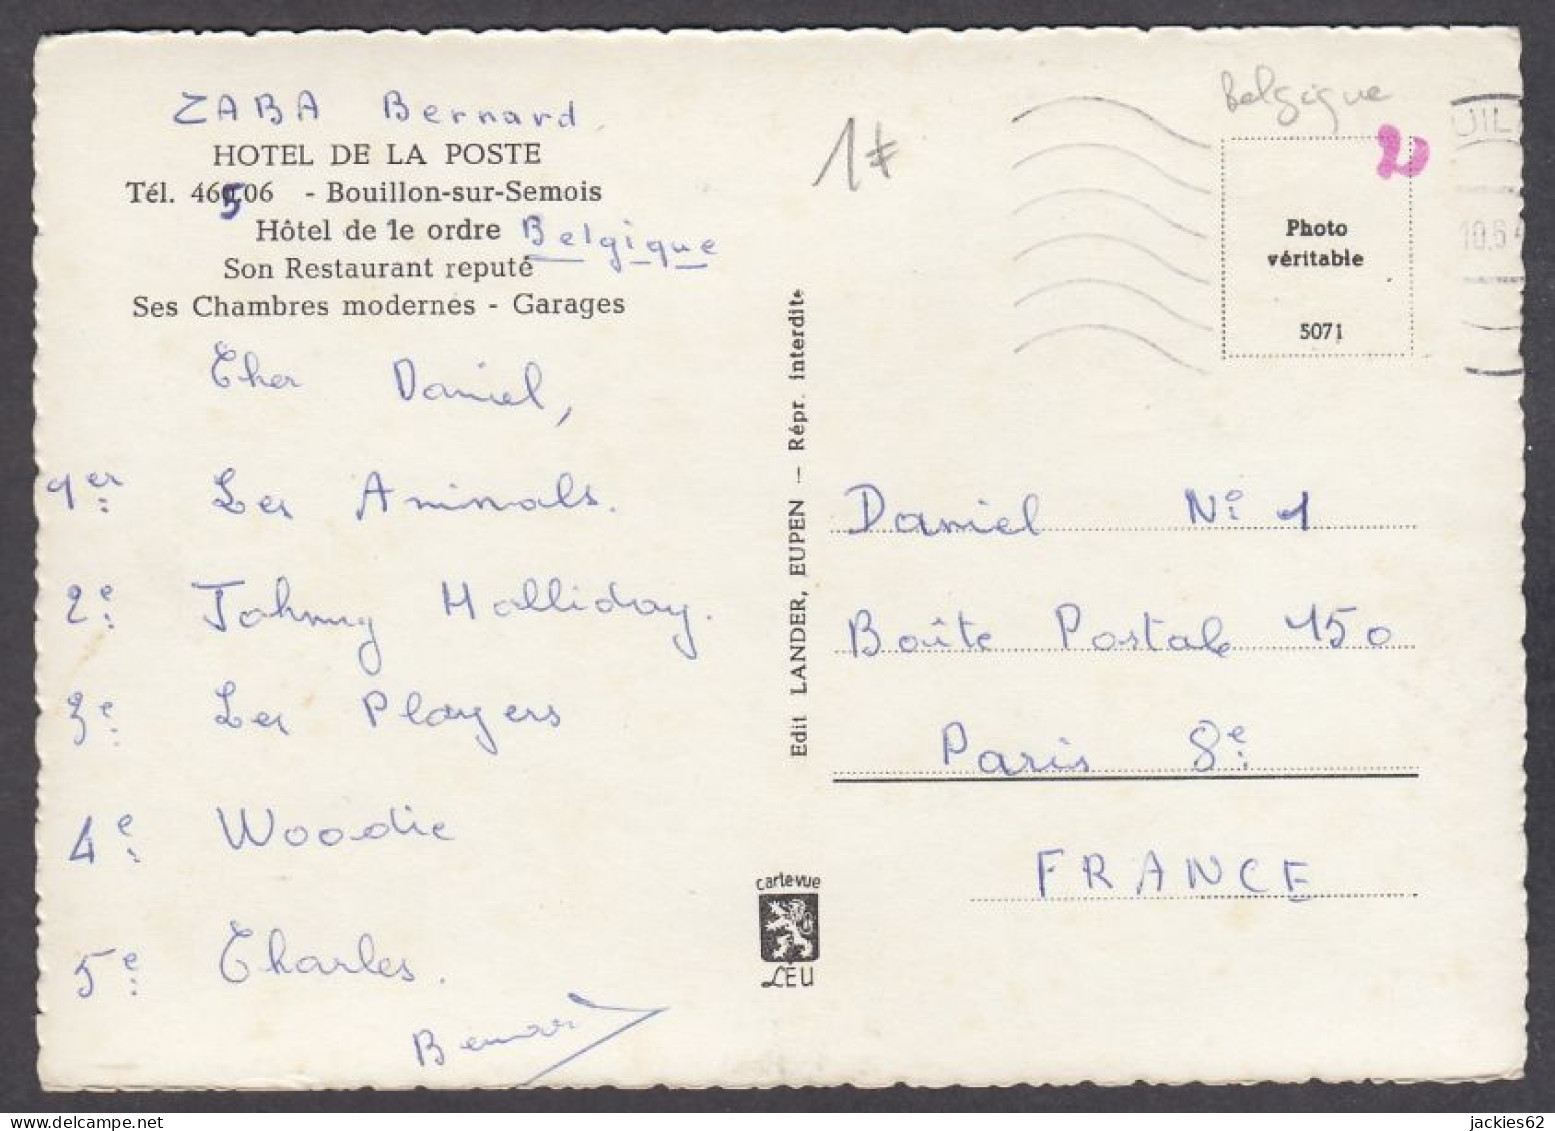 ZABA Bernard
HOTEL DE LA POSTE
Tél. 46506 - Bouillon-sur-Semois
Hôtel de 1e ordre Belgique
Son Restaurant reputé
Ses Chambres modernes - Garages
Cher Daniel,
1er Les Animals.
2e Johnny Halliday.
3e Les Players
4e Woodie
5e Charles.
Bernard
Edit LANDER, EUPEN — Répr. interdite
carte-vue
LEU
Belgique
Photo
véritable
5071
10.6
Daniel No 1
Boîte Postale 150
Paris 8e
FRANCE
jackies62